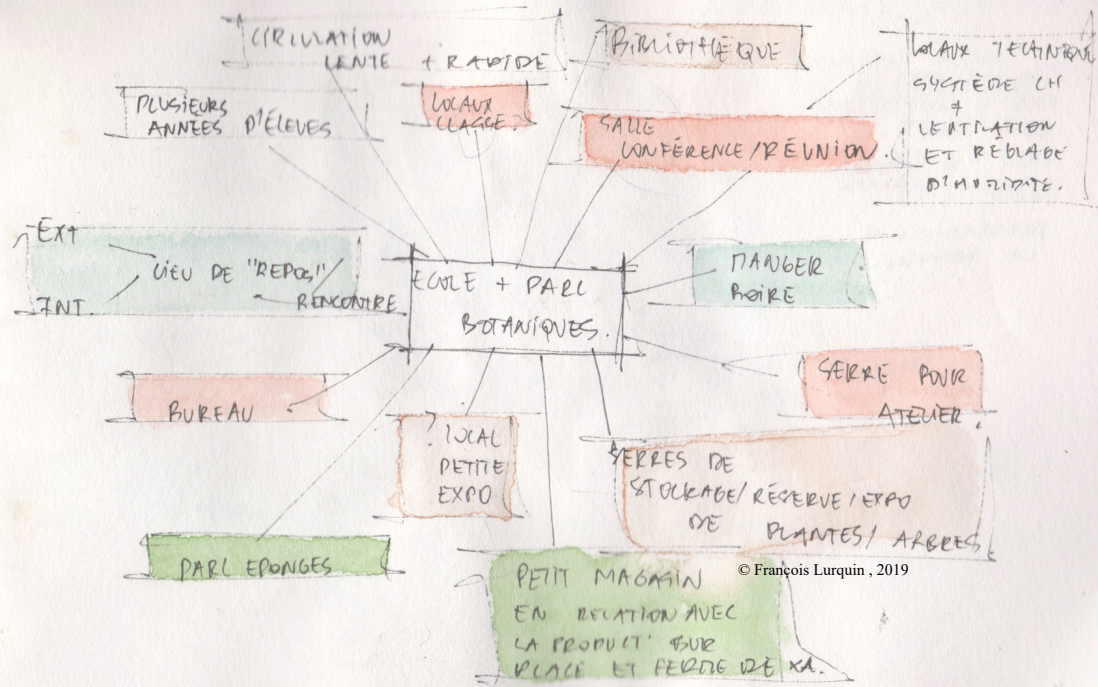 CIRCULATION
LENTE + RAPIDE
BIBLIOTHÈQUE
LOCAUX TECHNIQUE
SYSTÈME CH
+
VENTILATION
ET RÉGLAGE
D'HUMIDITÉ.
PLUSIEURS
ANNÉES D'ÉLEVES
LOCAUX
CLASSE.
SALLE
CONFÉRENCE/RÉUNION.
EXT
LIEU DE "REPOS"/
RENCONTRE
INT.
ECOLE + PARC
BOTANIQUES.
MANGER
BOIRE
SERRE POUR
ATELIER.
BUREAU
? LOCAL
PETITE
EXPO
SERRES DE
STOCKAGE/RÉSERVE/EXPO
DE PLANTES/ARBRES
PARC EPONGES
© François Lurquin , 2019
PETIT MAGASIN
EN RELATION AVEC
LA PRODUCT° SUR
PLACE ET FERME DE